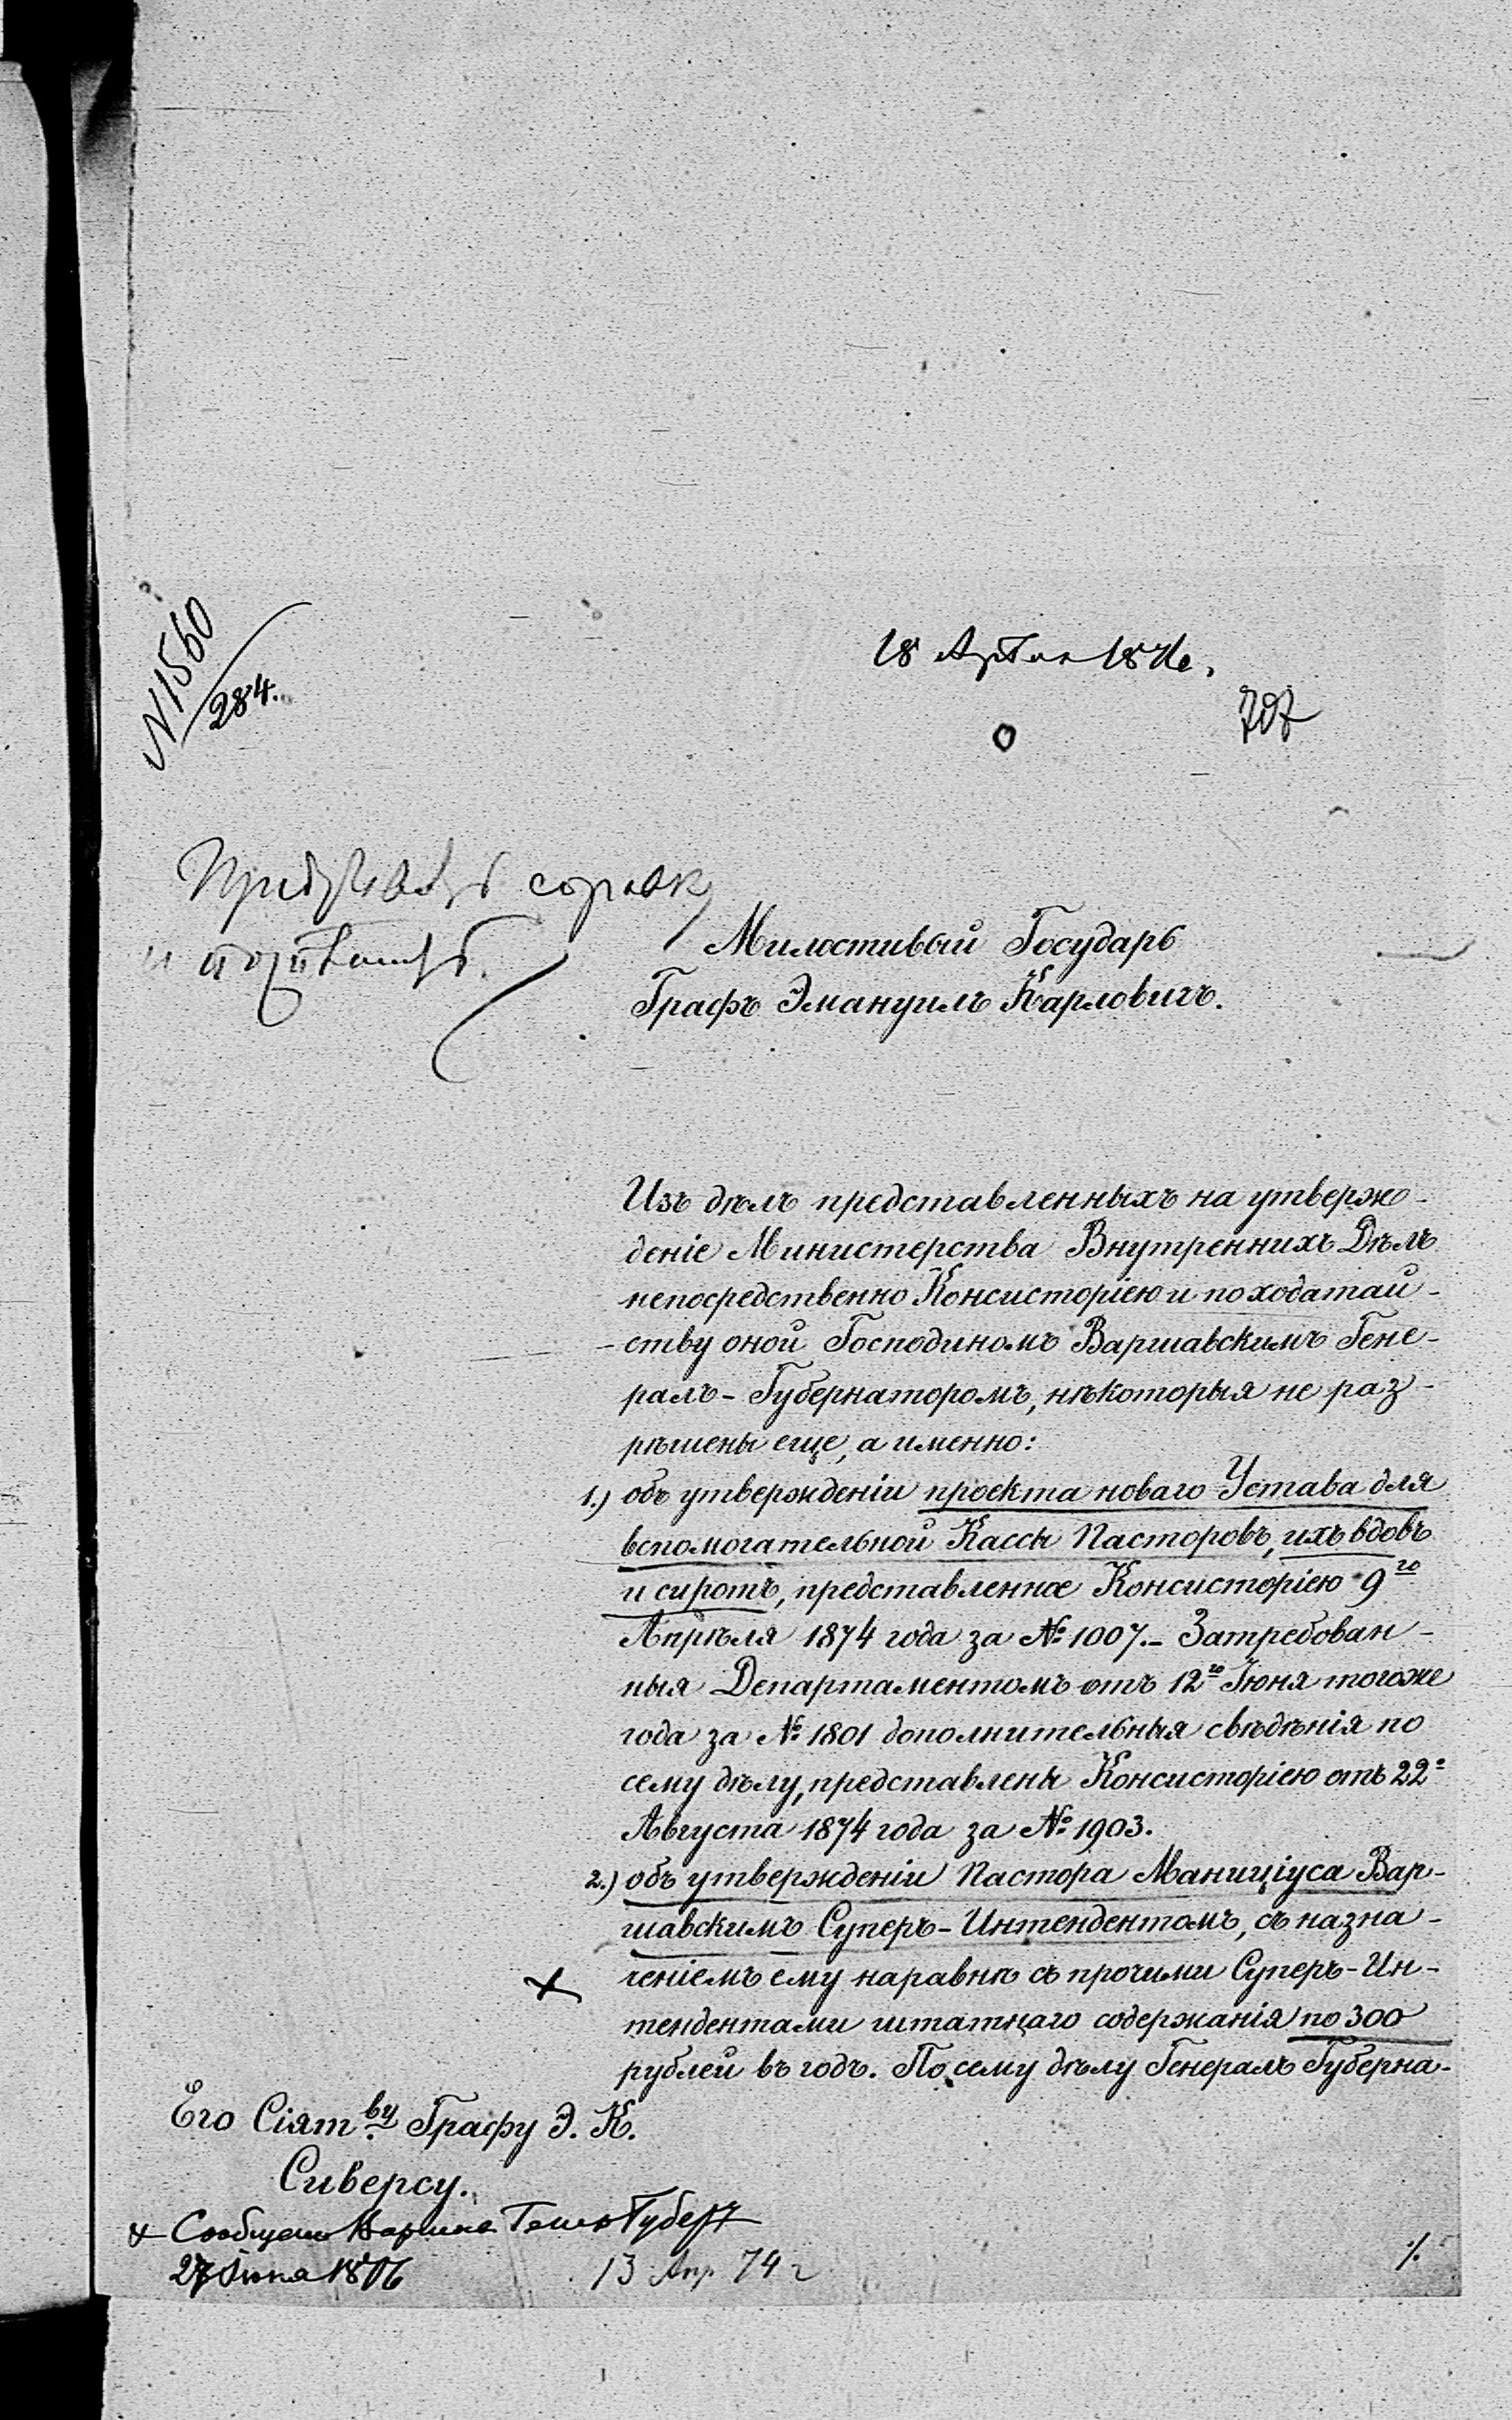 N 1560
284.
18 Апреля 1876.
707
справку
и
Милостивый Государь
Графъ Эмануилъ Карловичъ.
Изъ дѣлъ представленныхъ на утверж-
деніе Министерства Внутреннихъ Дѣлъ
непосредственно Консисторіею и по ходатай-
-ству оной Господиномъ Варшавскимъ Гене-
ралъ-Губернаторомъ, нѣкоторыя не раз-
рѣшены еще, а именно:
1.) объ утвержденіи проекта новаго Устава для
вспомогательной Кассы Пасторовъ, ихъ вдовъ
и сиротъ, представленное Консисторіею 9го
Апрѣля 1874 года за № 1007.- Затребован-
ныя Департаментомъ отъ 12го Іюня тогоже
года за № 1801 дополнительныя свѣдѣнія по
сему дѣлу, представлены Консисторіею отъ 22го
Августа 1874 года за № 1903.
2.) объ утвержденіи Пастора Маниціуса Вар-
шавскимъ Суперъ-Интендентомъ, съ назна-
ченіемъ ему наравнѣ съ прочими Суперъ-Ин-
тендентами штатнаго содержанія по 300
рублей въ годъ. По сему дѣлу Генералъ Губерна-
Его Сіятву Графу Э. К.
Сиверсу.
x Сообщено Губерн
27 Іюня 1876
13 Апр 74 г
./.